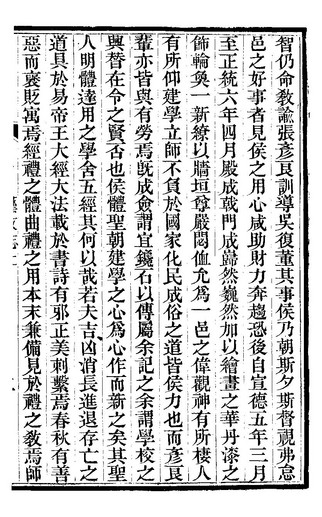 智仍命教諭張彥良訓導吳復董其事侯乃朝斯夕斯督視弗怠
邑之好事者見侯之用心咸助財力奔趨恐後自宣德五年三月
至正統六年四月殿成戟門成巋然巍然加以繪畫之華丹漆之
飾輪奐一新繚以牆垣尊嚴閟侐允為一邑之偉觀神有所棲人
有所仰建學立師不負於國家化民成俗之道皆侯力也而彥良
輩亦皆與有勞焉旣成僉謂宜鑱石以傳屬余記之余謂學校之
興替在令之賢否也侯體聖朝建學之心為心作而新之矣其聖
人明體達用之學舍五經其何以哉若夫吉凶消長進退存亡之
道具於易帝王大經大法載於書詩有邪正美刺繫焉春秋有善
惡而褒貶寓焉經禮之體曲禮之用本末兼備見於禮之教焉師